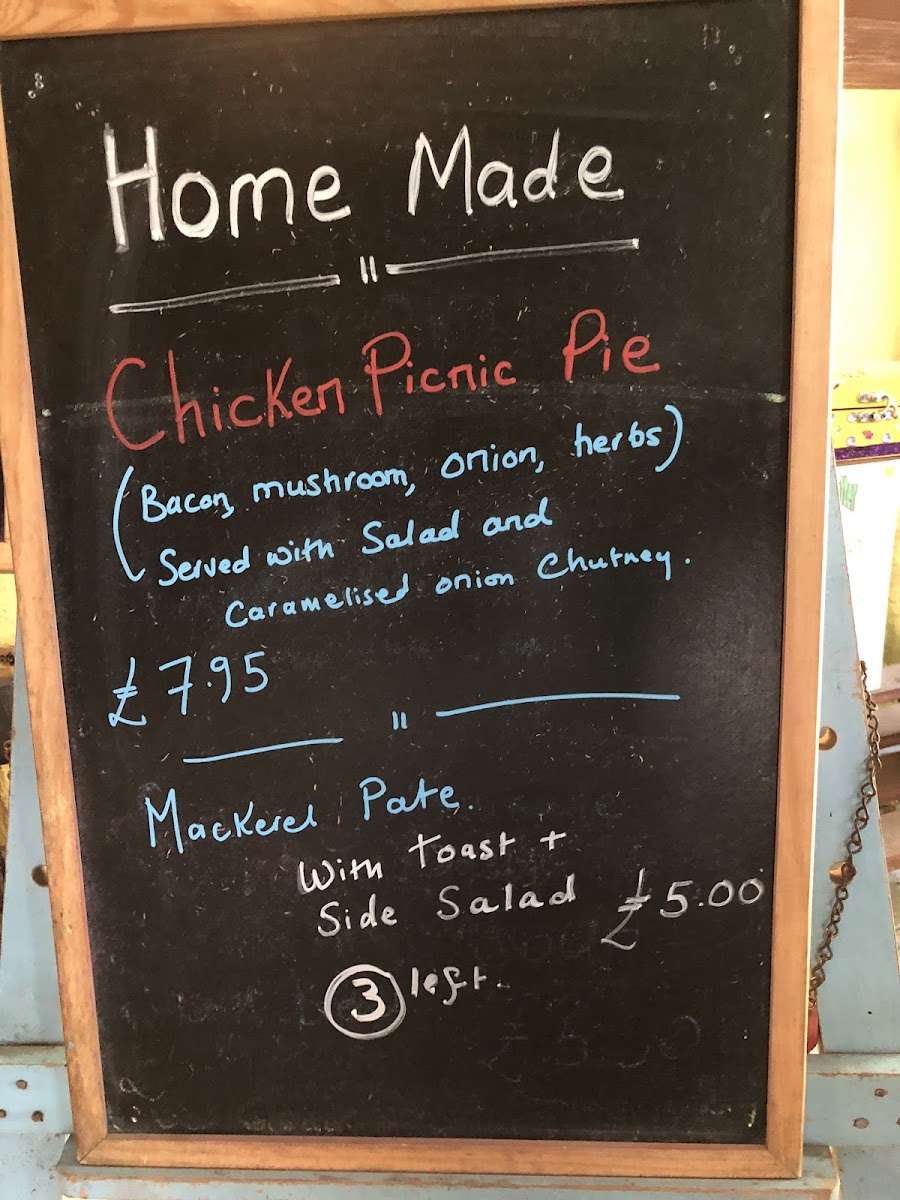 Home Made
"
Chicken Picnic Pie
(Bacon, mushroom, onion, herbs)
Served with Salad and
Caramelised onion Chutney.
£7.95
"
Mackerel Pate.
With toast +
Side Salad £5.00
3 left.